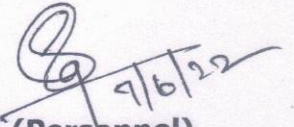 7/6/22
(Personnel)